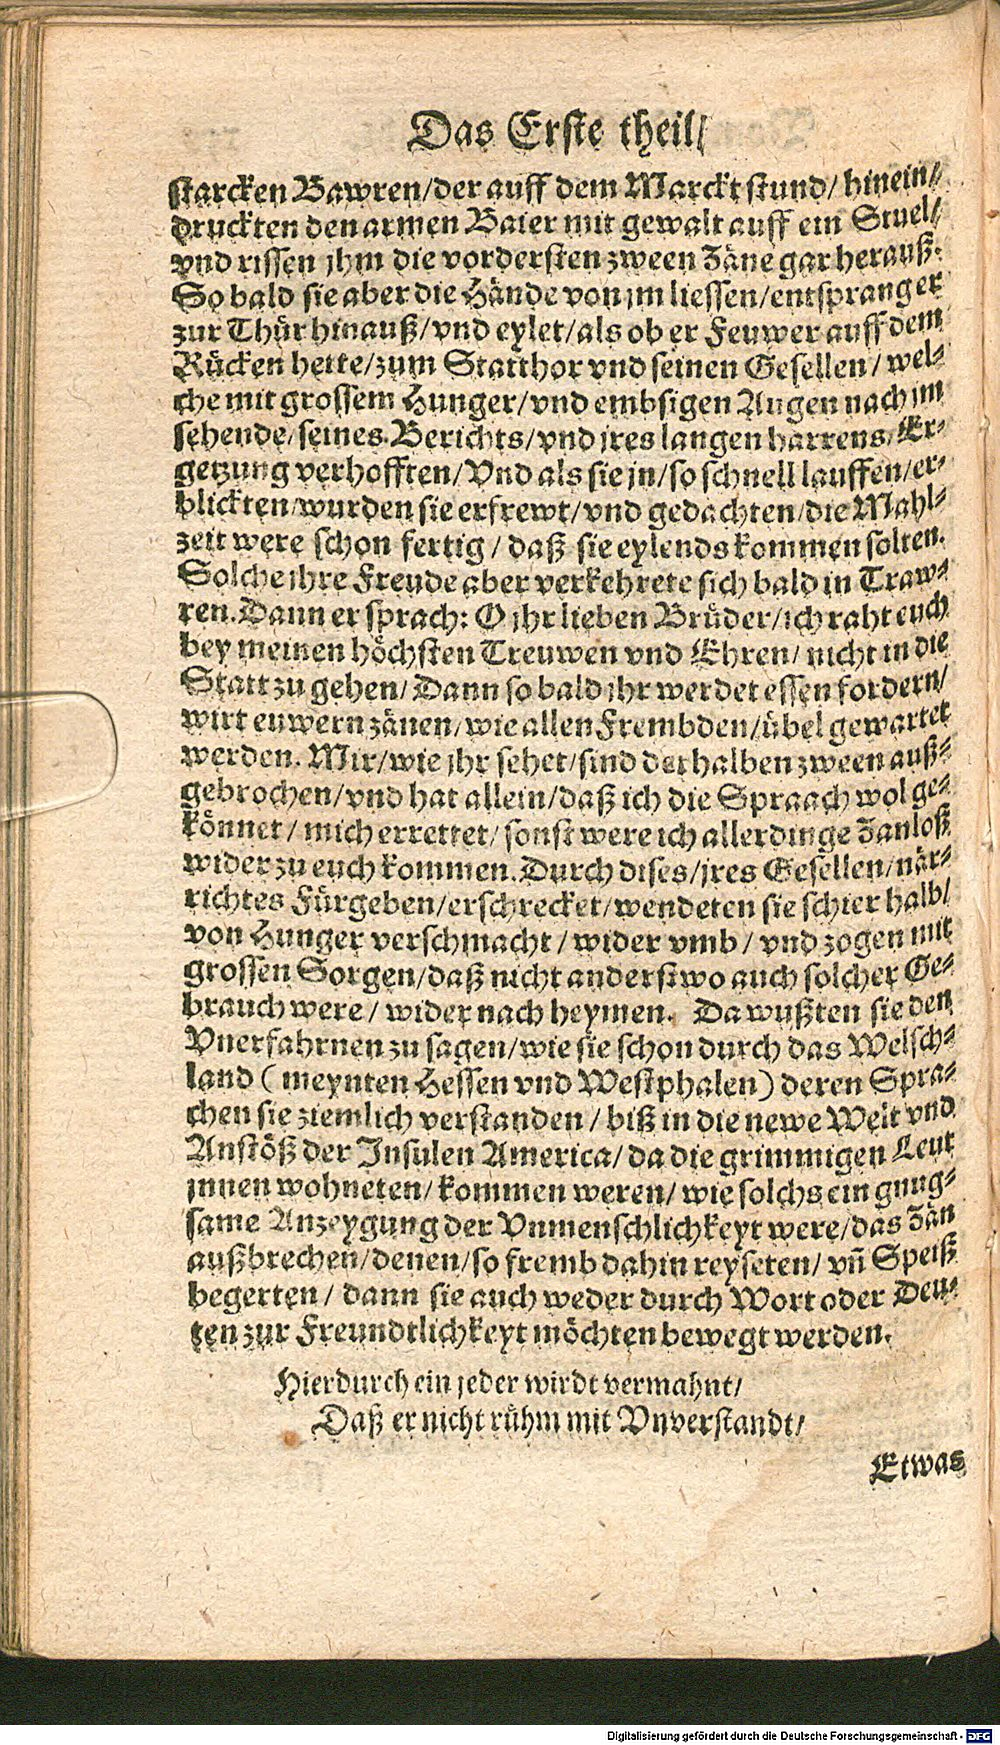 Das Erste theil/
starcken Bawren/der auff dem Marckt stund/ hinein/
druckten den armen Baier mit gewalt auff ein Stuel/
vnd rissen jhm die vordersten zween Zäne gar herauß.
So bald sie aber die Hände von jm liessen/entsprang er
zur Thür hinauß/vnd eylet/als ob er Feuwer auff dem
Rücken hette/zum Statthor vnd seinen Gesellen/ wel-
che mit grossem Hunger/vnd embsigen Augen nach jm
sehende/seines Berichts/vnd jres langen harrens/Er-
getzung verhofften/Vnd als sie jn/so schnell lauffen/er-
blickten/wurden sie erfrewt/vnd gedachten/die Mahl-
zeit were schon fertig/ daß sie eylends kommen solten.
Solche jhre Freude aber verkehrete sich bald in Traw-
ren. Dann er sprach: O jhr lieben Brüder/ich raht euch
bey meinen höchsten Treuwen vnd Ehren/ nicht in die
Statt zu gehen/ Dann so bald jhr werdet essen fordern/
wirt euwern zänen/wie allen Frembden/übel gewartet
werden. Mir/wie jhr sehet/sind derhalben zween auß-
gebrochen/vnd hat allein/daß ich die Spraach wol ge-
könnet/ mich errettet/ sonst were ich allerdinge Zanloß
wider zu euch kommen. Durch dises/jres Gesellen/när-
richtes Fürgeben/erschrecket/wendeten sie schier halb/
von Hunger verschmacht/ wider vmb/ vnd zogen mit
grossen Sorgen/daß nicht anderstwo auch solcher Ge-
brauch were/ wider nach heymen. Da wußten sie den
Vnerfahrnen zu sagen/wie sie schon durch das Welsch-
land (meynten Hessen vnd Westphalen) deren Spra-
chen sie ziemlich verstanden/ biß in die newe Welt vnd
Anstöß der Insulen America/ da die grimmigen Leut
jnnen wohneten/ kommen weren/ wie solchs ein gnug-
same Anzeygung der Vnmenschlichkeyt were/das Zän
außbrechen/denen/so fremb dahin reyseten/ vn̄ Speiß
begerten/ dann sie auch weder durch Wort oder Deu-
ten zur Freundtlichkeyt möchten bewegt werden.
Hierdurch ein jeder wirdt vermahnt/
Daß er nicht rühm mit Vnverstandt/
Etwas
Digitalisierung gefördert durch die Deutsche Forschungsgemeinschaft - DFG